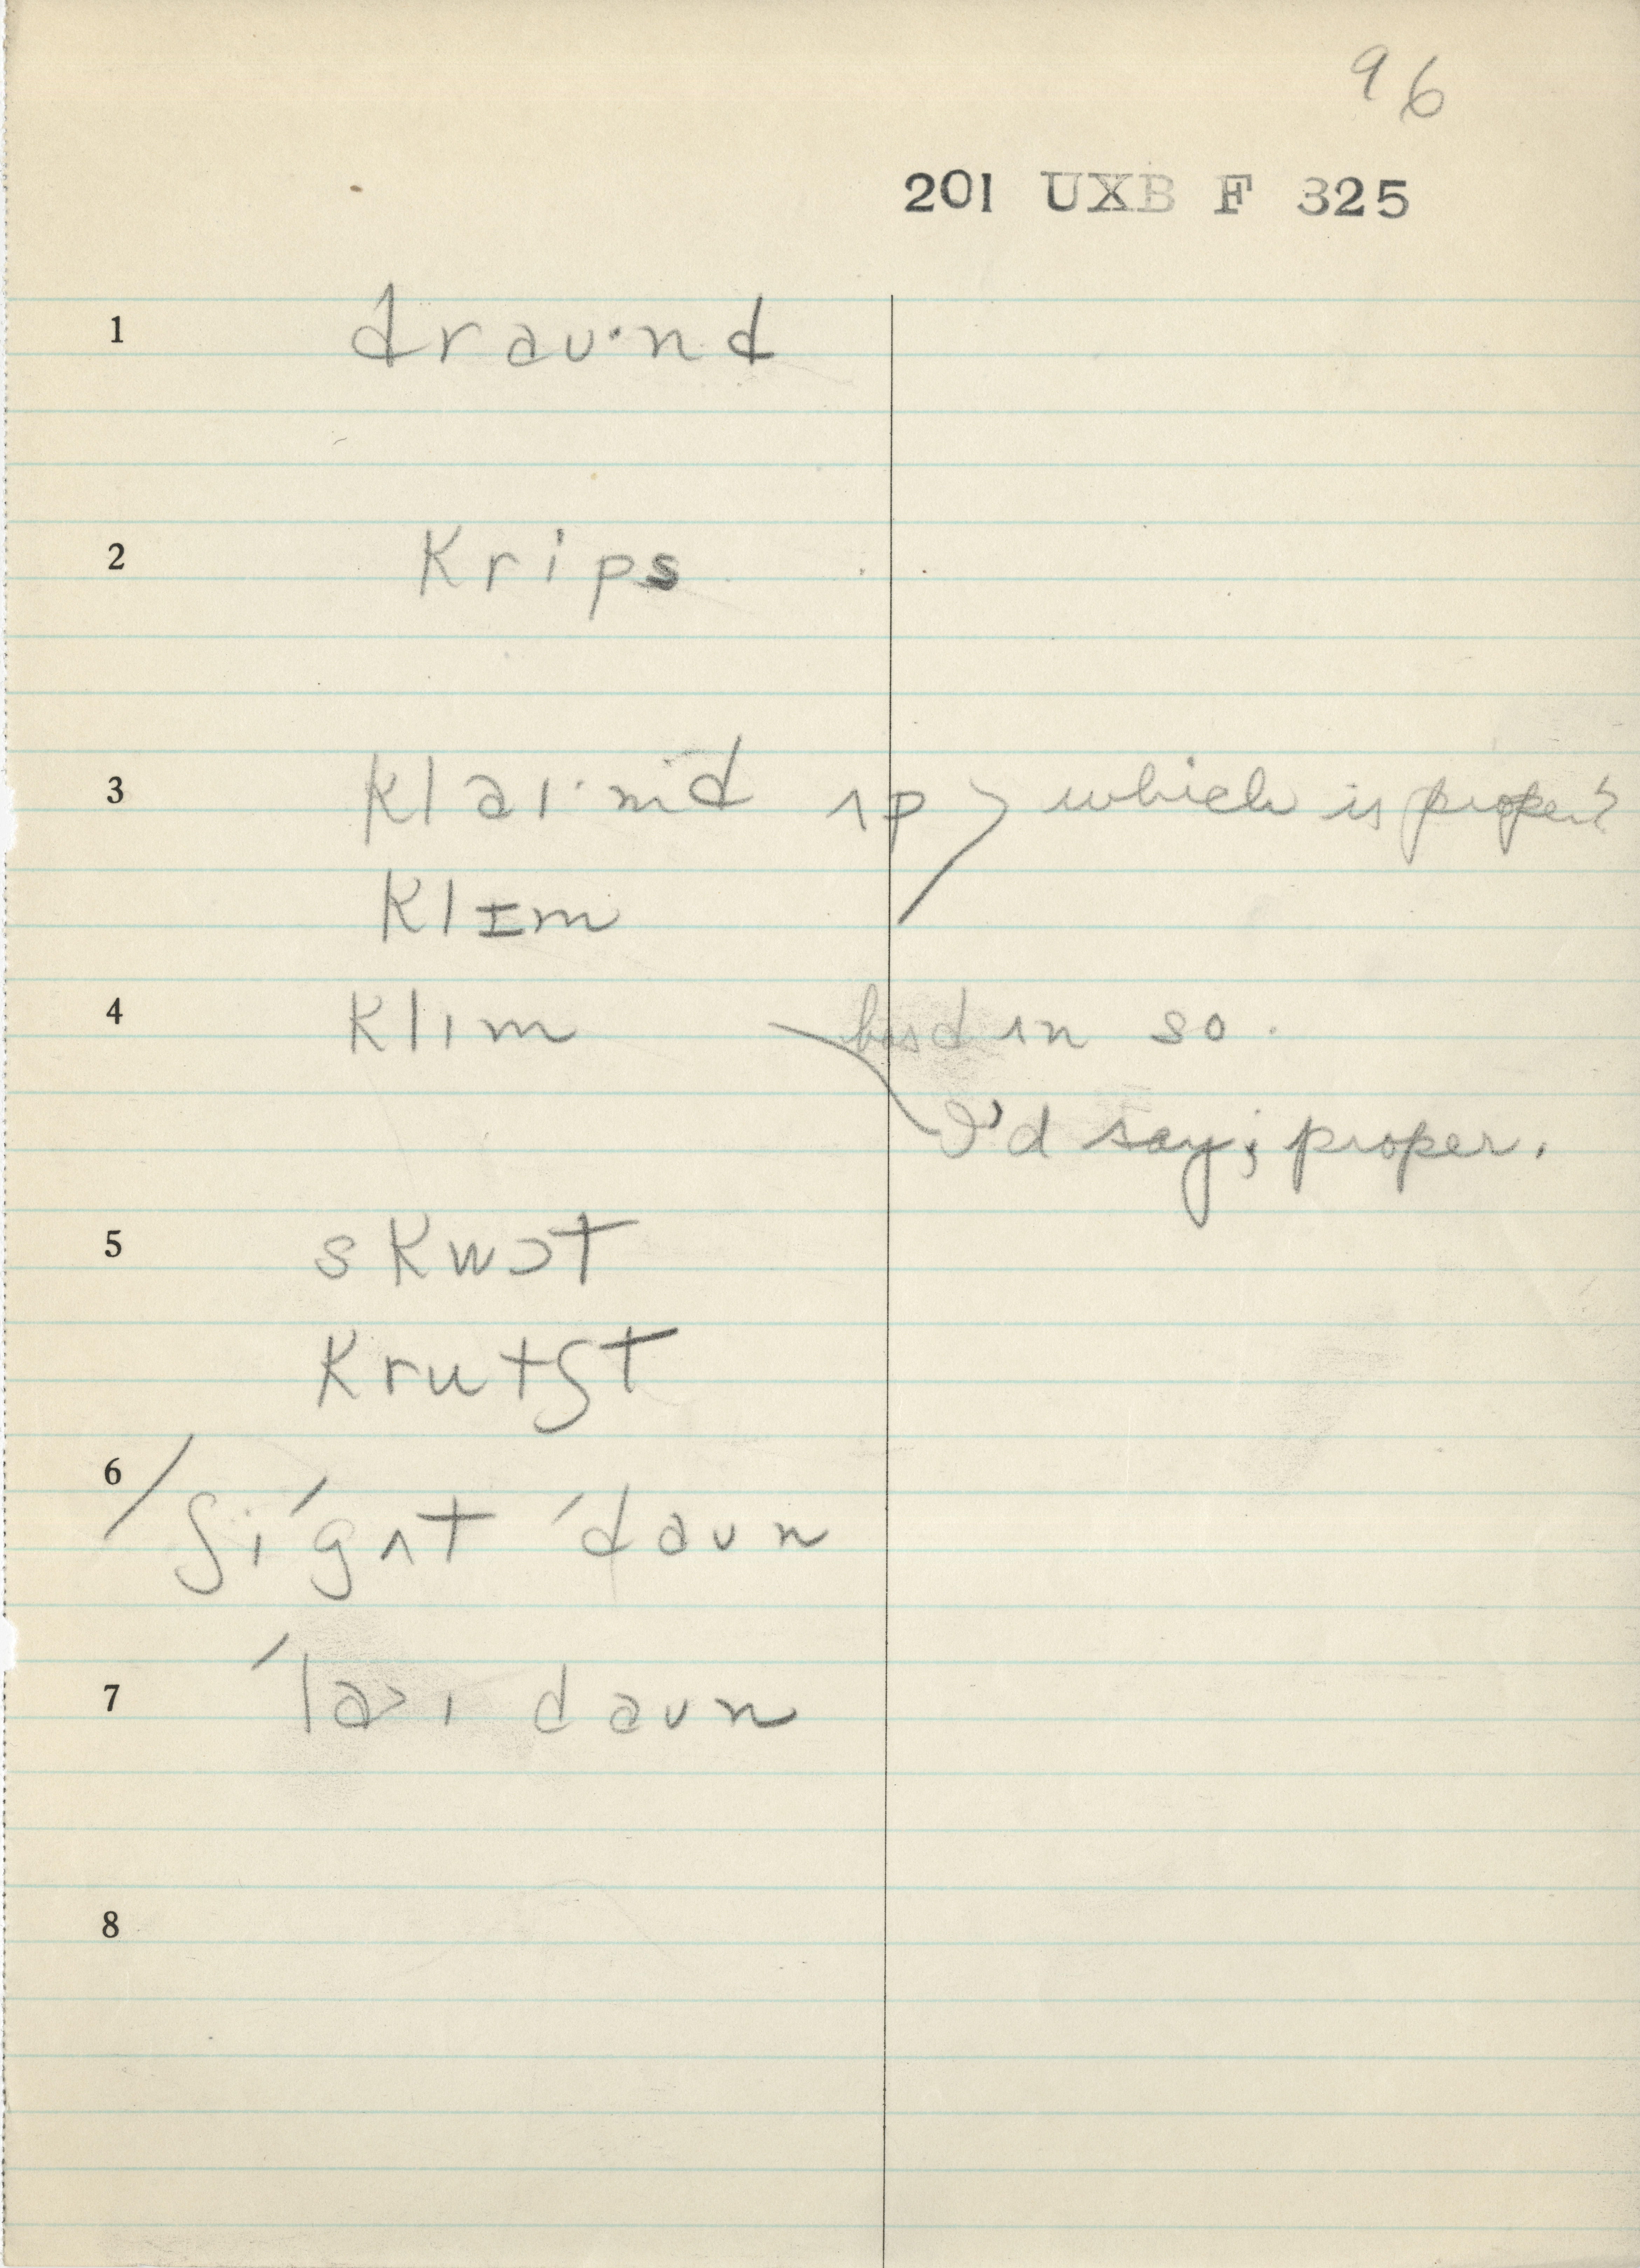 96
201 UXB F 325
1 draʊ·nd
2 krips
3 klaɪ·md ʌp which is proper?
klɪm
4 klım ʌn so.
I'd say; proper.
5 skwɔt
krutʃt
6 / ʃi ˈgʌt ˈdaʊn
7 ˈla>ɪ daʊn
8